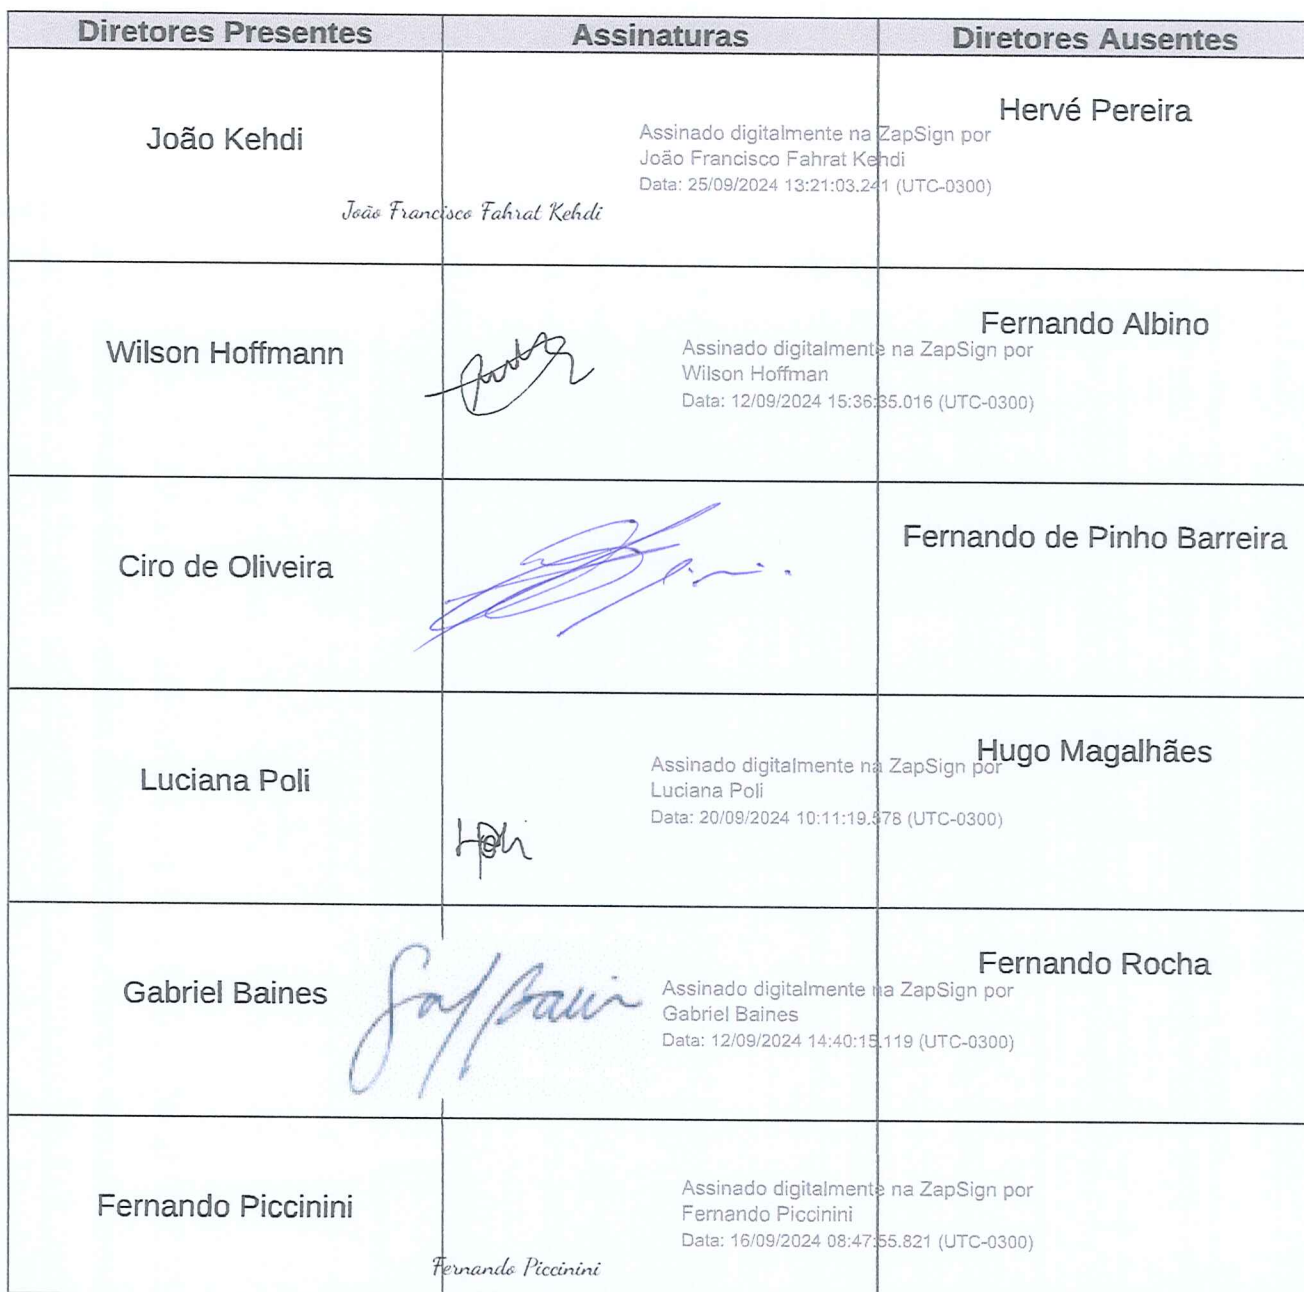 Diretores Presentes Assinaturas Diretores Ausentes
João Kehdi
Assinado digitalmente na ZapSign por
João Francisco Fahrat Kehdi
Data: 25/09/2024 13:21:03.241 (UTC-0300)
João Francisco Fahrat Kehdi
Hervé Pereira
Wilson Hoffmann
Assinado digitalmente na ZapSign por
Wilson Hoffman
Data: 12/09/2024 15:36:35.016 (UTC-0300)
Fernando Albino
Ciro de Oliveira
Fernando de Pinho Barreira
Luciana Poli
Assinado digitalmente na ZapSign por
Luciana Poli
Data: 20/09/2024 10:11:19.578 (UTC-0300)
Hugo Magalhães
Gabriel Baines
Assinado digitalmente na ZapSign por
Gabriel Baines
Data: 12/09/2024 14:40:15.119 (UTC-0300)
Fernando Rocha
Fernando Piccinini
Assinado digitalmente na ZapSign por
Fernando Piccinini
Data: 16/09/2024 08:47:55.821 (UTC-0300)
Fernando Piccinini